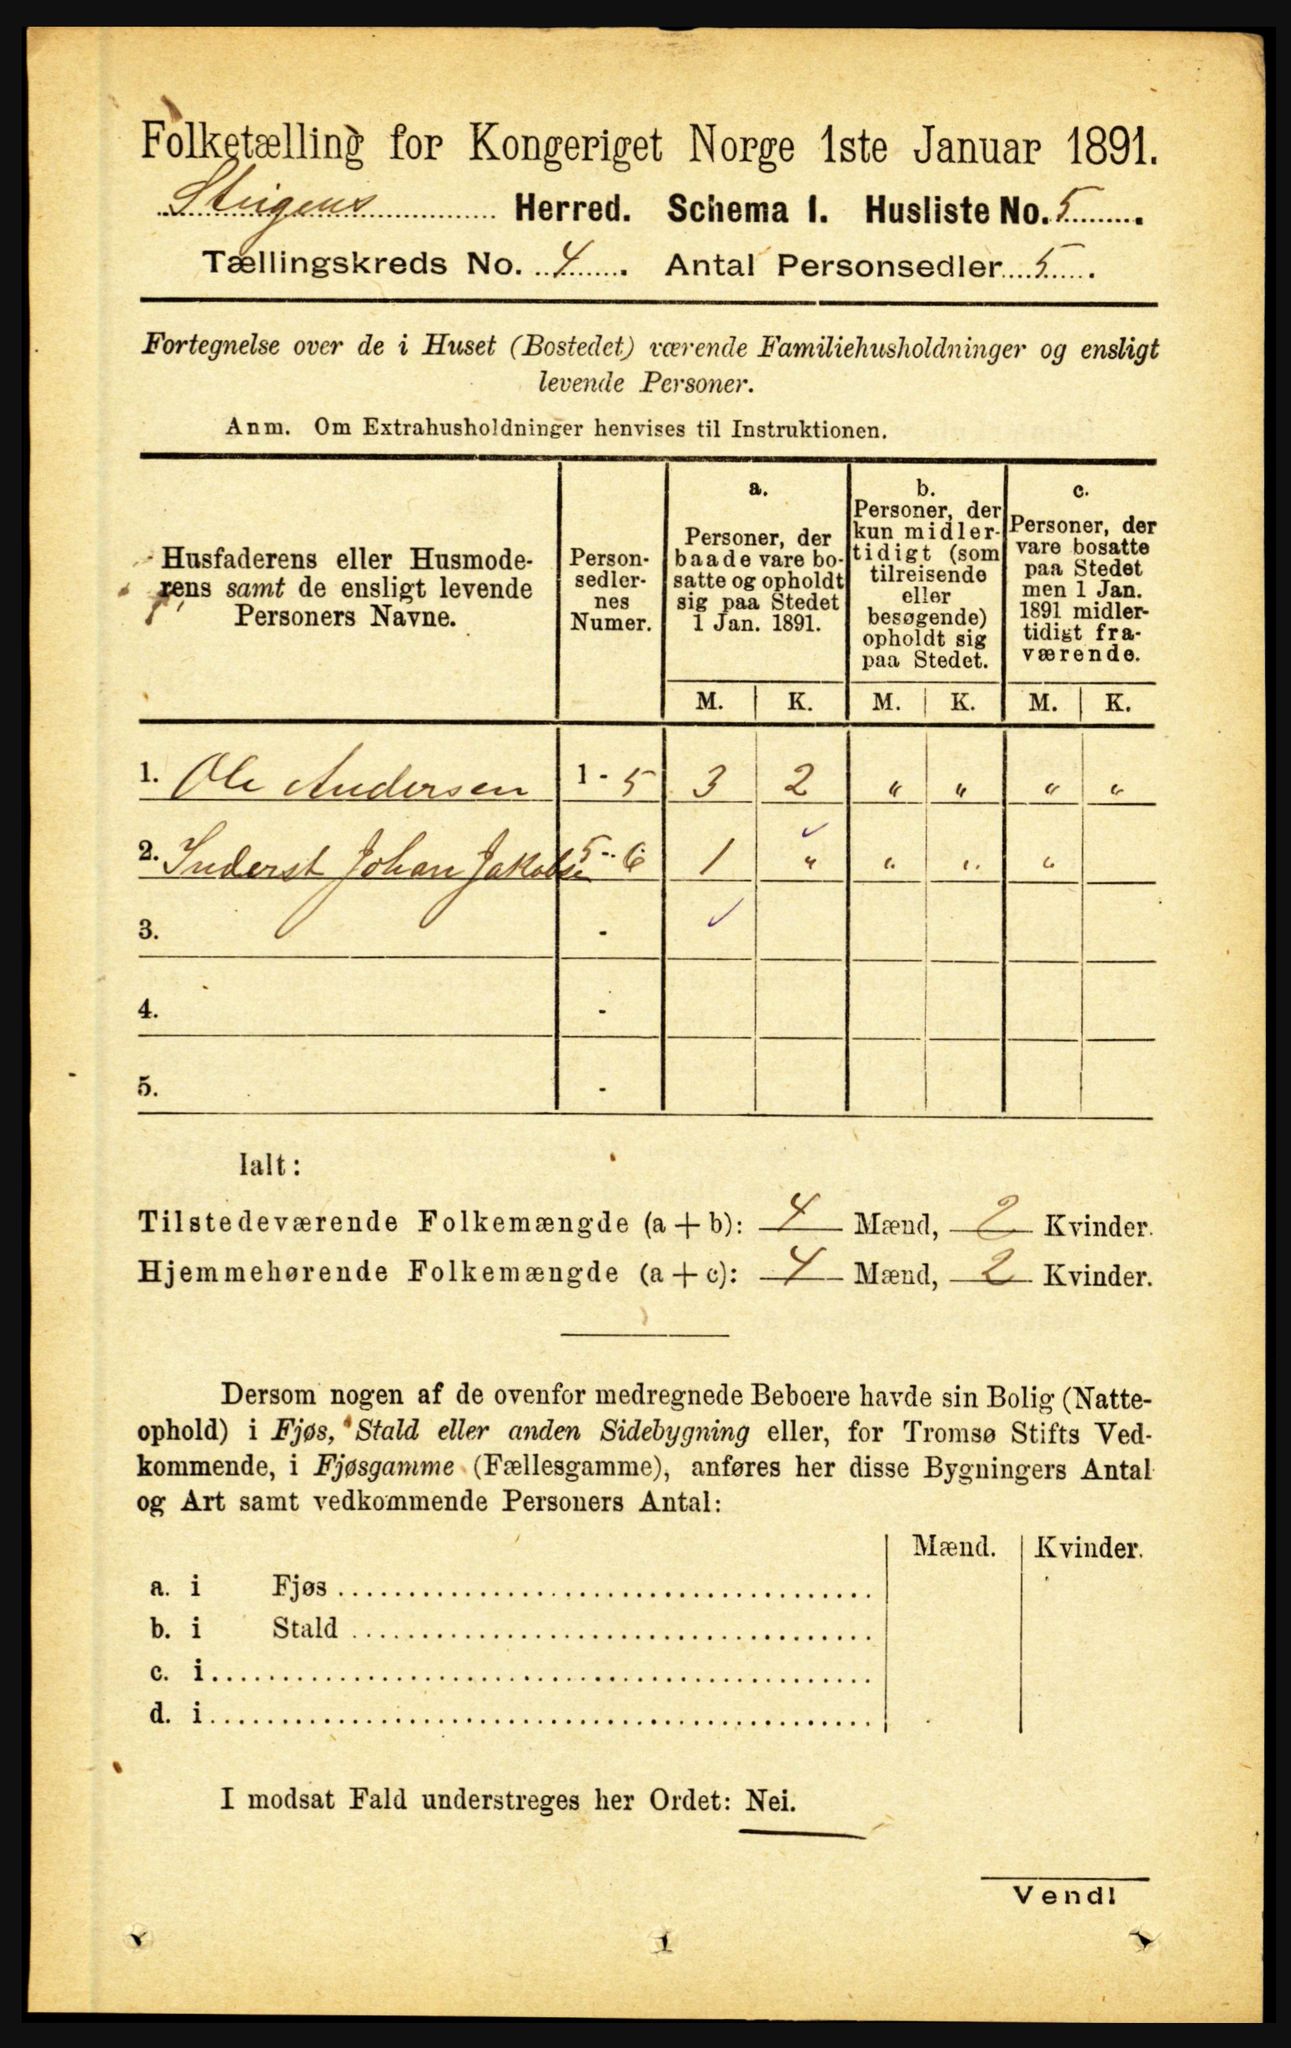 Folketælling for Kongeriget Norge 1ste Januar 1891.
Steigens Herred. Schema I. Husliste No. 5.
Tællingskreds No. 4. Antal Personsedler 5.
Fortegnelse over de i Huset (Bostedet) værende Familiehusholdninger og ensligt
levende Personer.
Anm. Om Extrahusholdninger henvises til Instruktionen.
Husfaderens eller Husmode-
rens samt de ensligt levende
Personers Navne.
Person-
sedler-
nes
Numer.
a.
Personer, der
baade vare bo-
satte og opholdt
sig paa Stedet
1 Jan. 1891.
b.
Personer, der
kun midler-
tidigt (som
tilreisende
eller
besøgende)
opholdt sig
paa Stedet.
c.
Personer, der
vare bosatte
paa Stedet
men 1 Jan.
1891 midler-
tidigt fra-
værende.
M. K. M. K. M. K.
1. Ole Andersen 1 - 5 3 2 " " " "
2. Inderst Johan Jakobse 5 - 6 1 " " " "
3. -
4. -
5. -
Ialt:
Tilstedeværende Folkemængde (a + b): 4 Mænd, 2 Kvinder.
Hjemmehørende Folkemængde (a + c): 4 Mænd, 2 Kvinder.
Dersom nogen af de ovenfor medregnede Beboere havde sin Bolig (Natte-
ophold) i Fjøs, Stald eller anden Sidebygning eller, for Tromsø Stifts Ved-
kommende, i Fjøsgamme (Fællesgamme), anføres her disse Bygningers Antal
og Art samt vedkommende Personers Antal:
Mænd. Kvinder.
a. i Fjøs
b. i Stald
c. i
d. i
I modsat Fald understreges her Ordet: Nei.
Vend!
1